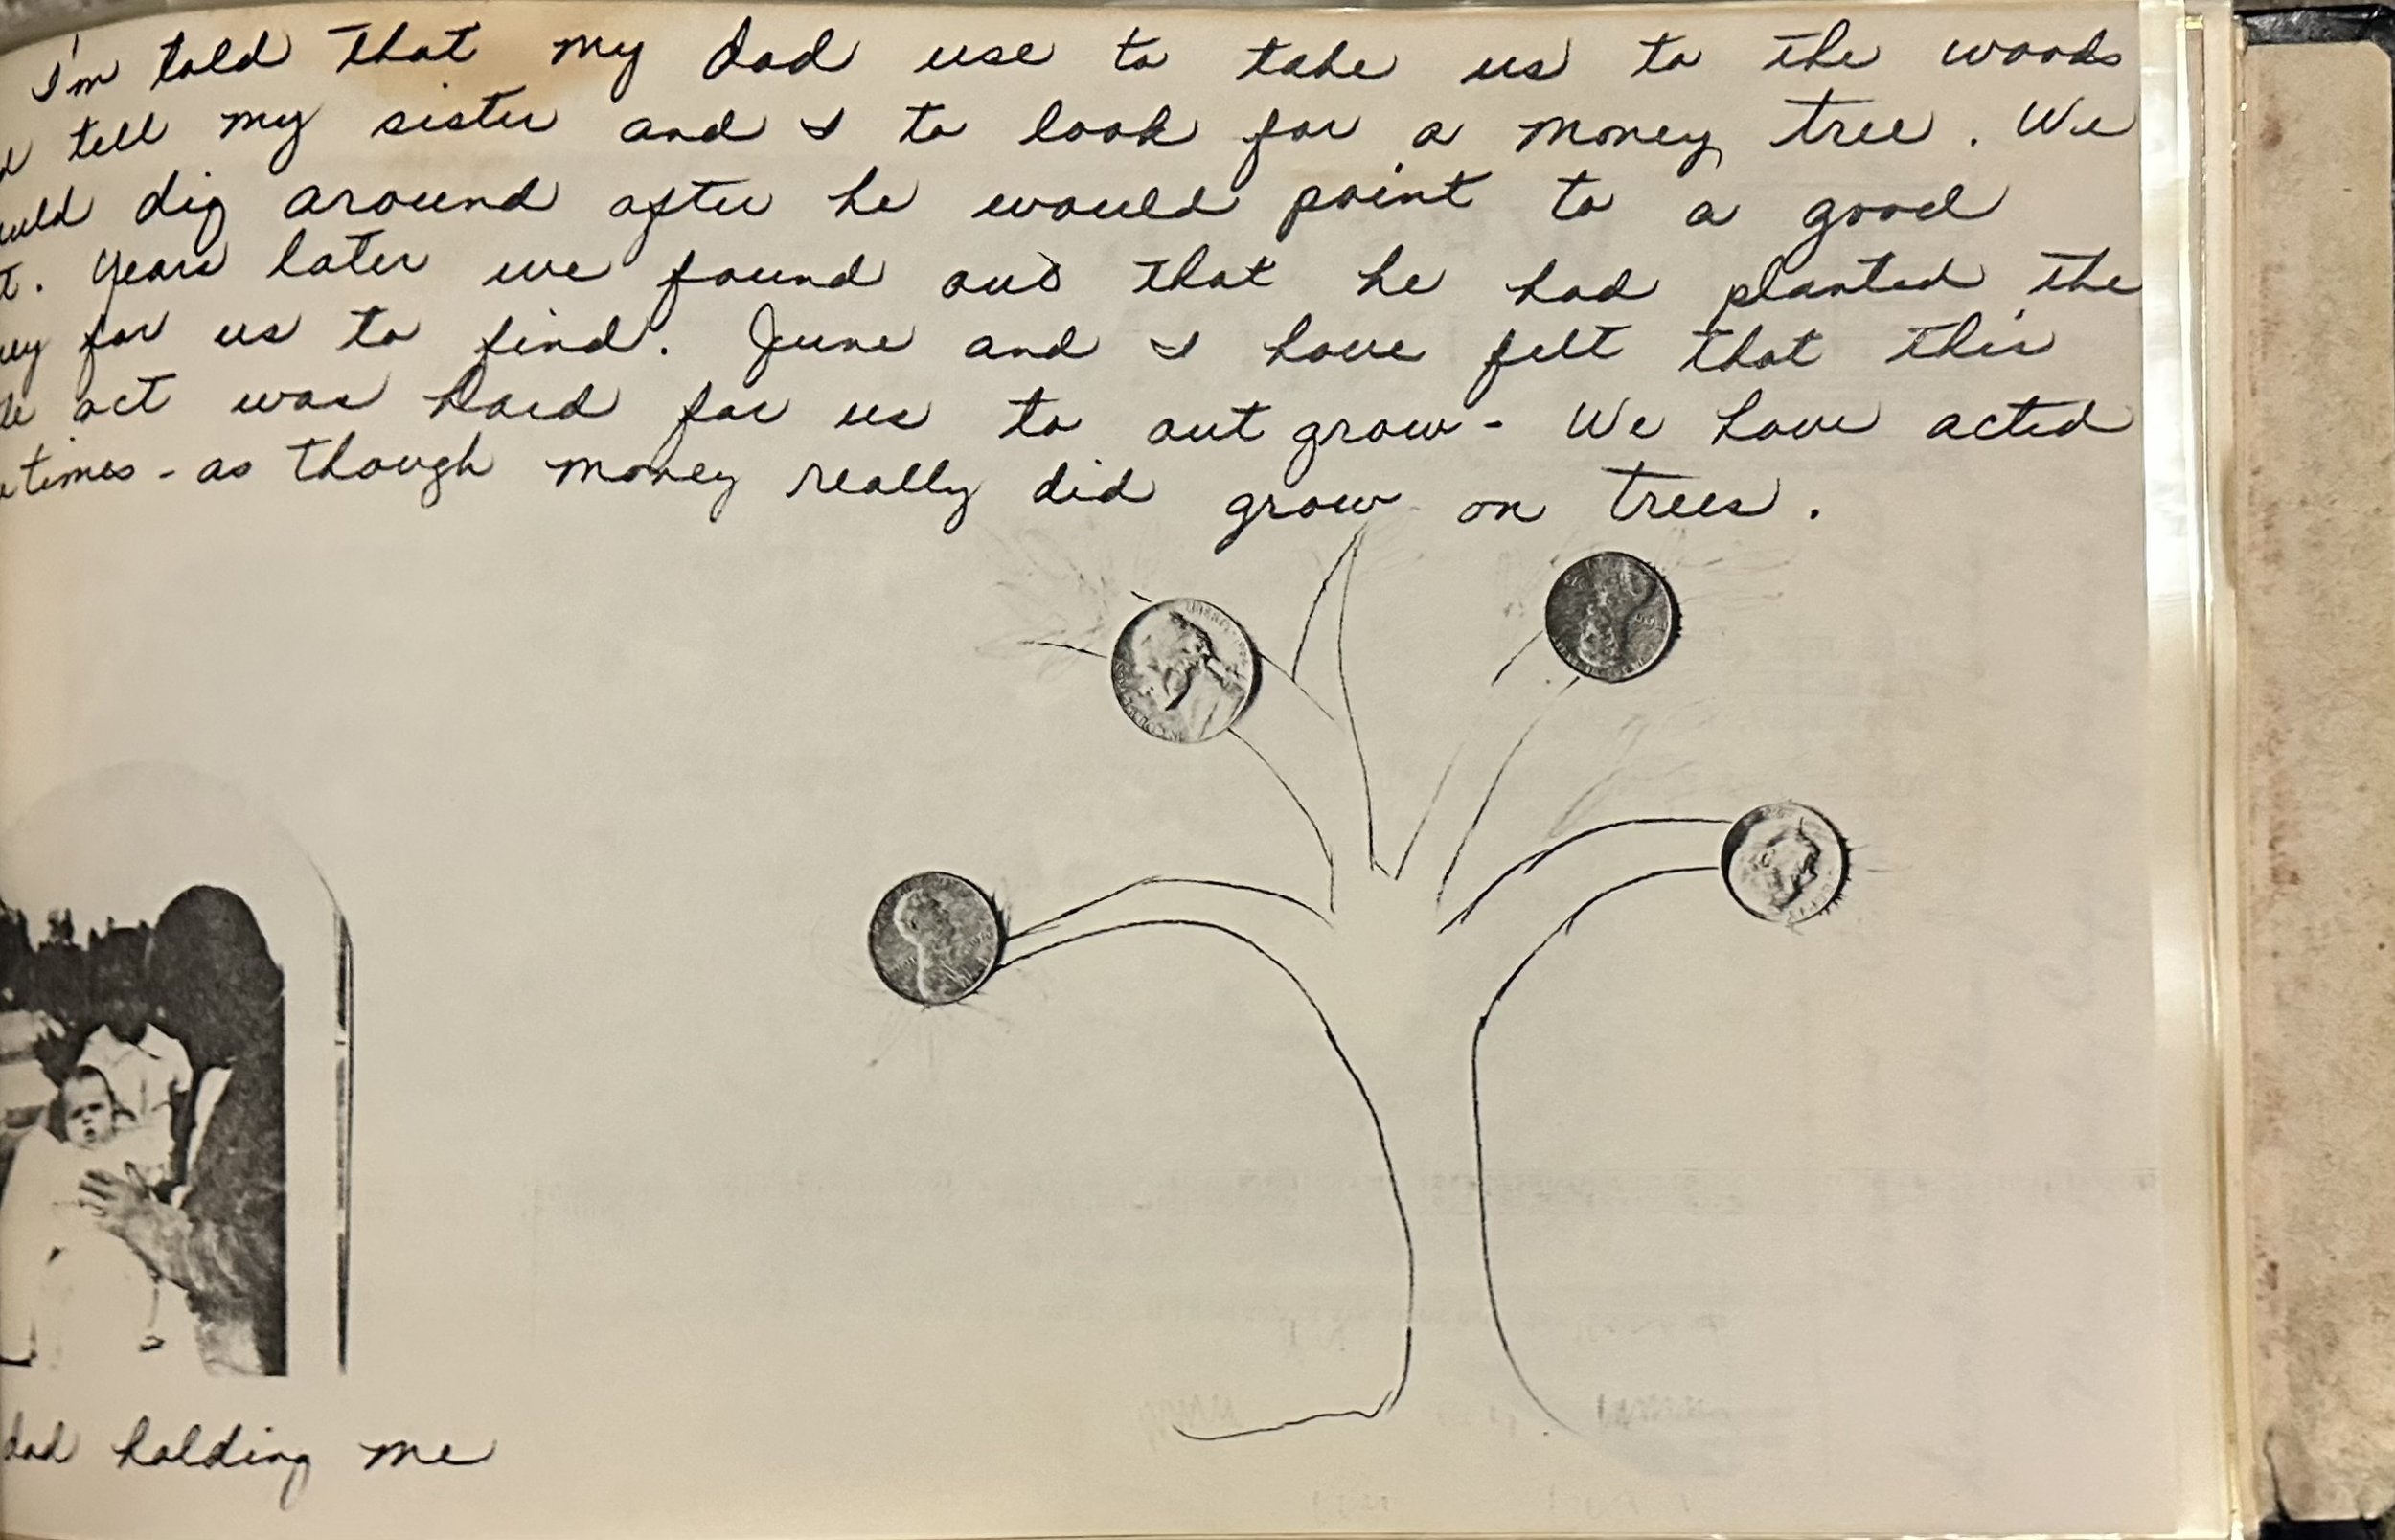 I'm told that my dad use to take us to the woods
tell my sister and I to look for a money tree. We
would dig around after he would point to a good
. Years later we found out that he had planted the
for us to find. June and I have felt that this
act was hard for us to out grow - We have acted
times - as though money really did grow on trees.
dad holding me